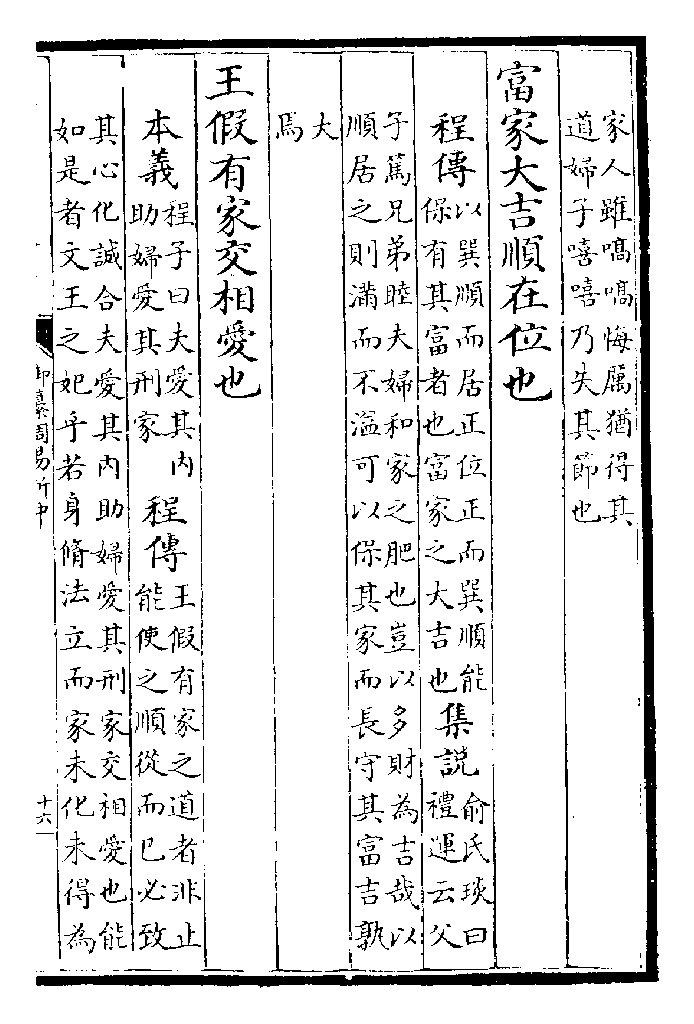 家人雖嗃嗃悔厲猶得其
道婦子嘻嘻乃失其節也
富家大吉順在位也
程傳
以巽順而居正位正而巽順能
保有其富者也富家之大吉也
集說
俞氏琰曰
禮運云父
子篤兄弟睦夫婦和家之肥也豈以多財為吉哉以
順居之則滿而不溢可以保其家而長守其富吉孰
大
焉
王假有家交相愛也
本義
程子曰夫愛其內
助婦愛其刑家
程傳
王假有家之道者非止
能使之順從而已必致
其心化誠合夫愛其內助婦愛其刑家交相愛也能
如是者文王之妃乎若身脩法立而家未化未得為
御纂周易折中
十六